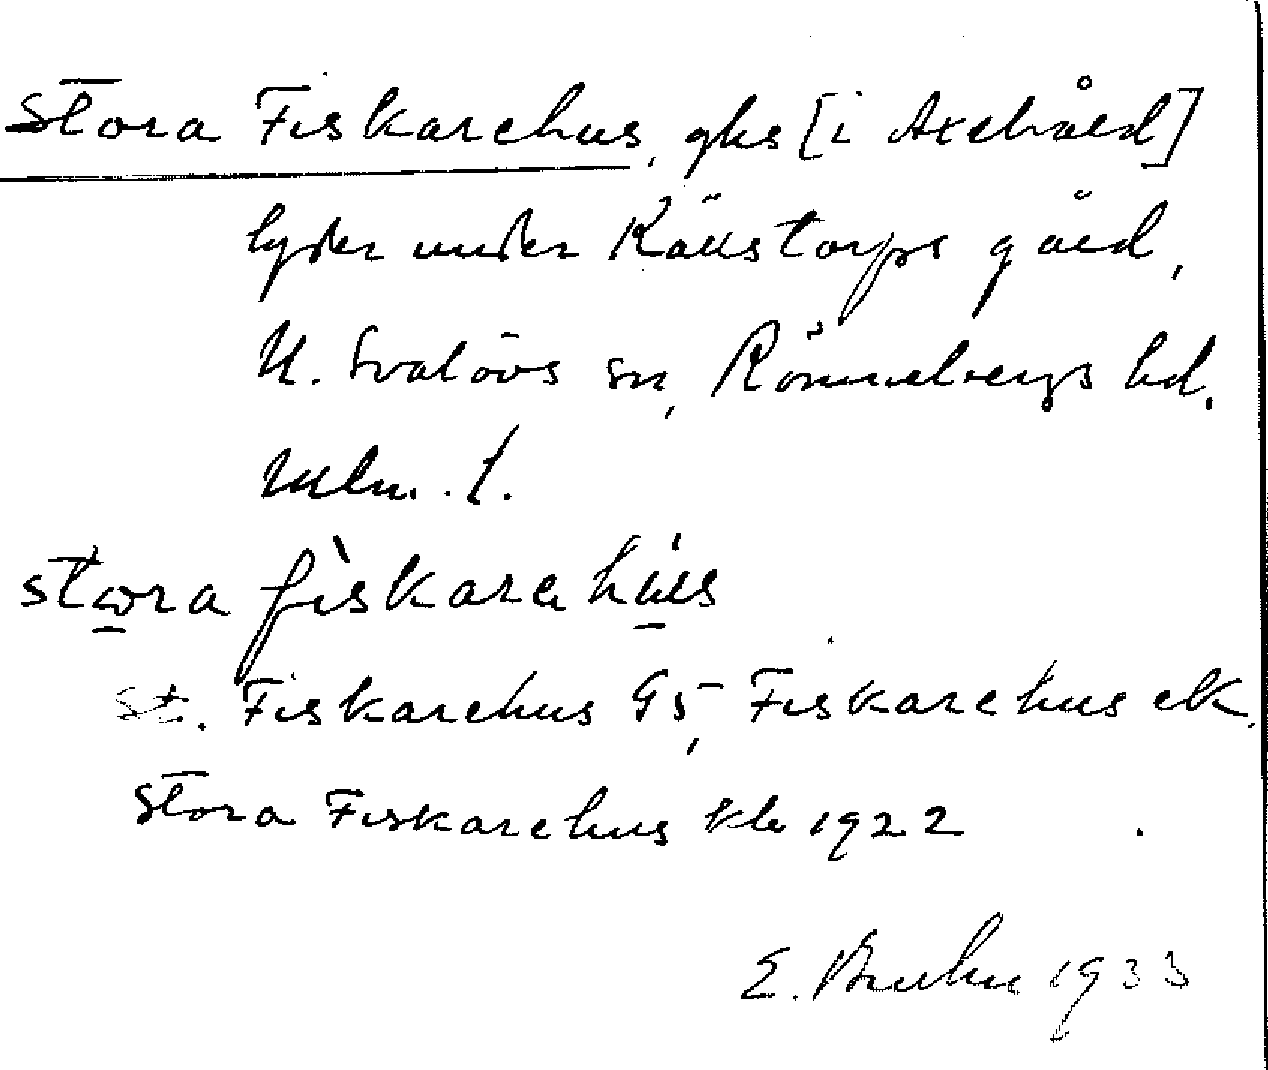 Stora Fiskarehus, ghs [i Axelvåld]
lyder under Källstorps gård,
N. Svalövs sn, Rönnebergs hd.
Mlm. l.
stora fìskarehús
St. Fiskarehus G5, Fiskarehus ek
Stora Fiskarehus kb 1922
E. Bruhn 1933